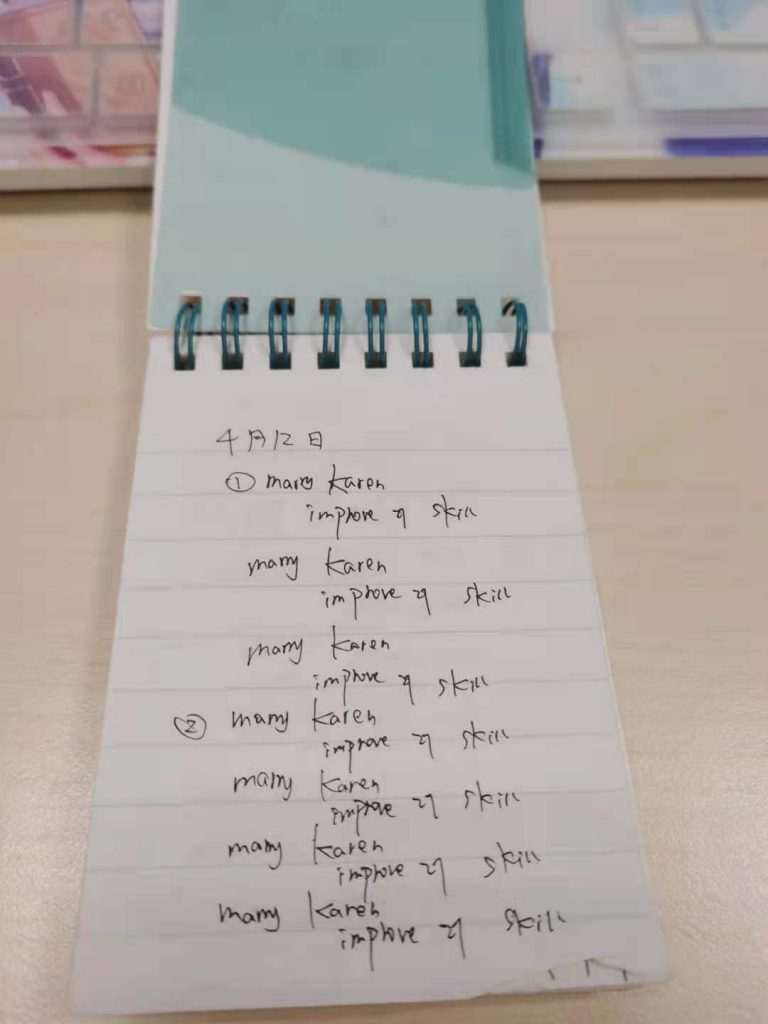 4月12日
① marry karen
improve 的 skill
marry karen
improve 的 skill
marry karen
improve 的 skill
② marry karen
improve 的 skill
marry karen
improve 的 skill
marry karen
improve 的 skill
marry karen
improve 的 skill